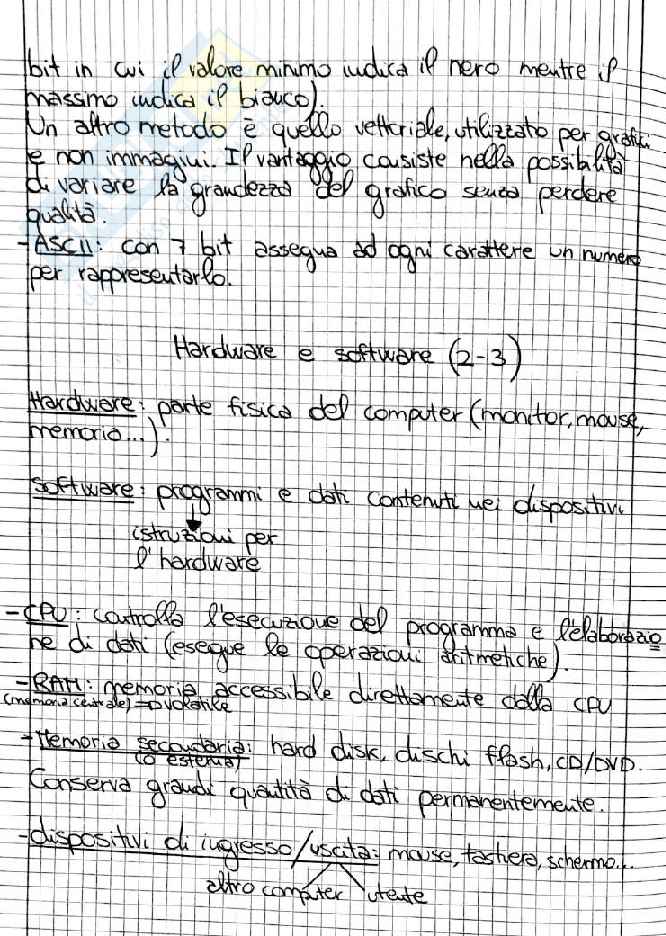 bit in cui il valore minimo indica il nero mentre il
massimo indica il bianco).
Un altro metodo è quello vettoriale, utilizzato per grafici
e non immagini. Il vantaggio consiste nella possibilità
di variare la grandezza del grafico senza perdere
qualità.
-ASCII: con 7 bit assegna ad ogni carattere un numero
per rappresentarlo.
Hardware e software (2-3)
Hardware: parte fisica del computer (monitor, mouse,
memoria...).
Software: programmi e dati contenuti nei dispositivi
istruzioni per
l'hardware
-CPU: controlla l'esecuzione del programma e l'elaborazio
ne di dati (esegue le operazioni aritmetiche).
-RAM: memoria accessibile direttamente dalla CPU
(memoria centrale) → volatile
-Memoria secondaria: hard disk, dischi flash, CD/DVD.
(o esterna)
Conserva grandi quantità di dati permanentemente.
-dispositivi di ingresso/uscita: mouse, tastiera, schermo...
altro computer utente